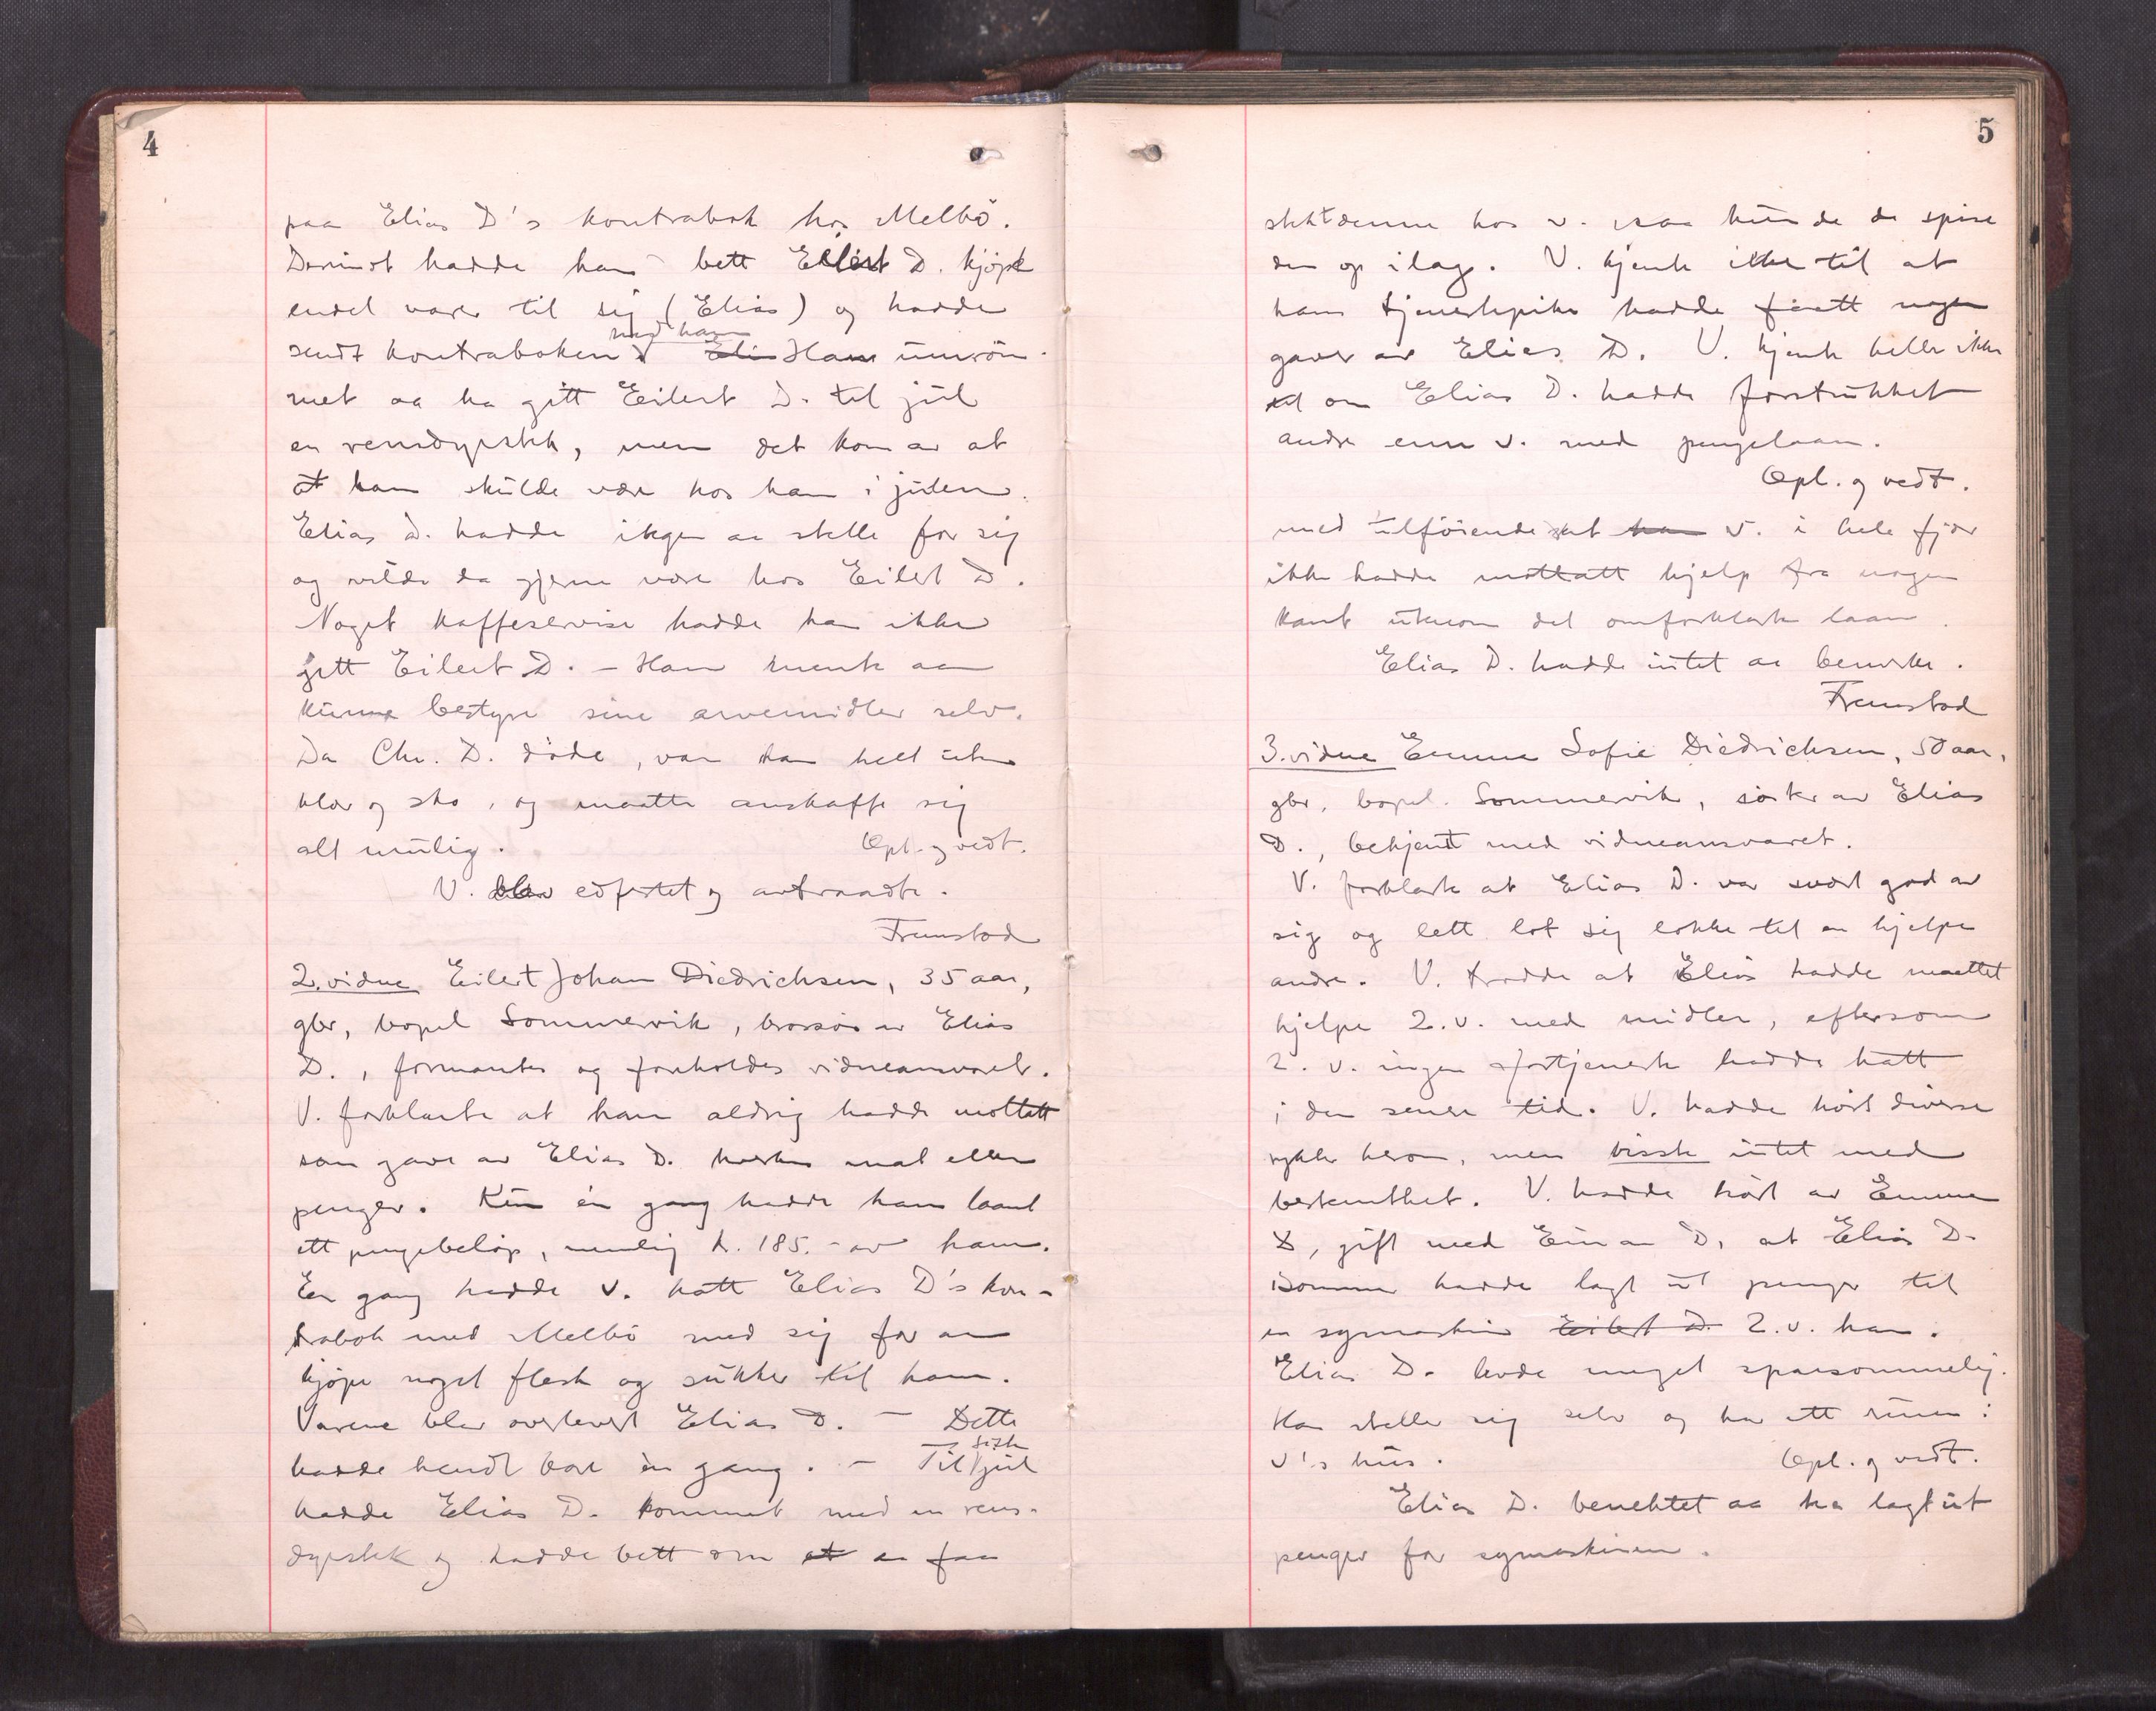 4
paa Elias D's kontrabok hos Melbö.
Derimot hadde han bett Eilert D. kjöpe
endel varer til sig (Elias) og hadde
med ham
sendt kontraboken. Eli Han innröm-
met aa ha gitt Eilert D. til jul
en rensdyrstek, men det kom av at
at han skulde være hos ham i julen.
Elias D. hadde ingen aa stelle for sig
og vilde da gjerne være hos Eilert D.
Noget kaffeservise hadde han ikke
gitt Eilert D. - Han mente aa
kunne bestyre sine arvemidler selv.
Da Chr. D. döde, var han helt uten
klær og sko, og maatte anskaffe sig
alt mulig. Opl. og vedt.
V. blev edfestet og avtraadte.
Fremstad
2. vidne Eilert Johan Diedrichsen, 35 aar,
gbr, bopel Sommervik, brorsön av Elias
D., formantes og foreholdes vidneansvaret.
V. forklarte at han aldrig hadde mottatt
som gave av Elias D. hverken mat eller
penger. Kun én gang hadde han laant
ett pengebelöp, nemlig k. 185.- av ham.
En gang hadde v. hatt Elias D's kon-
trabok med Melbö med sig for aa
kjöpe noget flesk og sukker til ham.
Varene blev overlevert Elias D. - Dette
sist
hadde hendt bare én gang. - Til jul
hadde Elias D. kommet med en rens-
dyrstek og hadde bett om at aa faa
5
stekt denne hos v. saa kunde de spise
den op ilag. V. kjente ikke til at
hans tjenestepike hadde faatt nogen
gaver av Elias D. V. kjente heller ikke
til om Elias D. hadde forstrukket
andre enn v. med pengelaan.
Opl. og vedt.
med tilföiende at han v. i hele fjor
ikke hadde mottatt hjelp fra nogen
kant utenom det omforklarte laan.
Elias D. hadde intet aa bemerke.
Fremstad
3. vidne Emma Sofie Diedrichsen, 50 aar,
gbr, bopel Sommervik, söster av Elias
D., bekjent med vidneansvaret.
V. forklarte at Elias D. var svært god av
sig og lett lot sig lokke til aa hjelpe
andre. V. trodde at Elias hadde maattet
hjelpe 2. v. med midler, eftersom
2. v. ingen fortjeneste hadde hatt
i den senere tid. V. hadde hört diverse
rykter herom, men visste intet med
bestemthet. V. hadde hört av Emma
D, gift med Einar D, at Elias D.
isommer hadde lagt ut penger til
en symaskin Eilert D. 2. v. har.
Elias D. levde meget sparsommelig.
Han steller sig selv og har ett rum i
V's hus. Opl. og vedt.
Elias D. benektet aa ha lagt ut
penger for symaskinen.